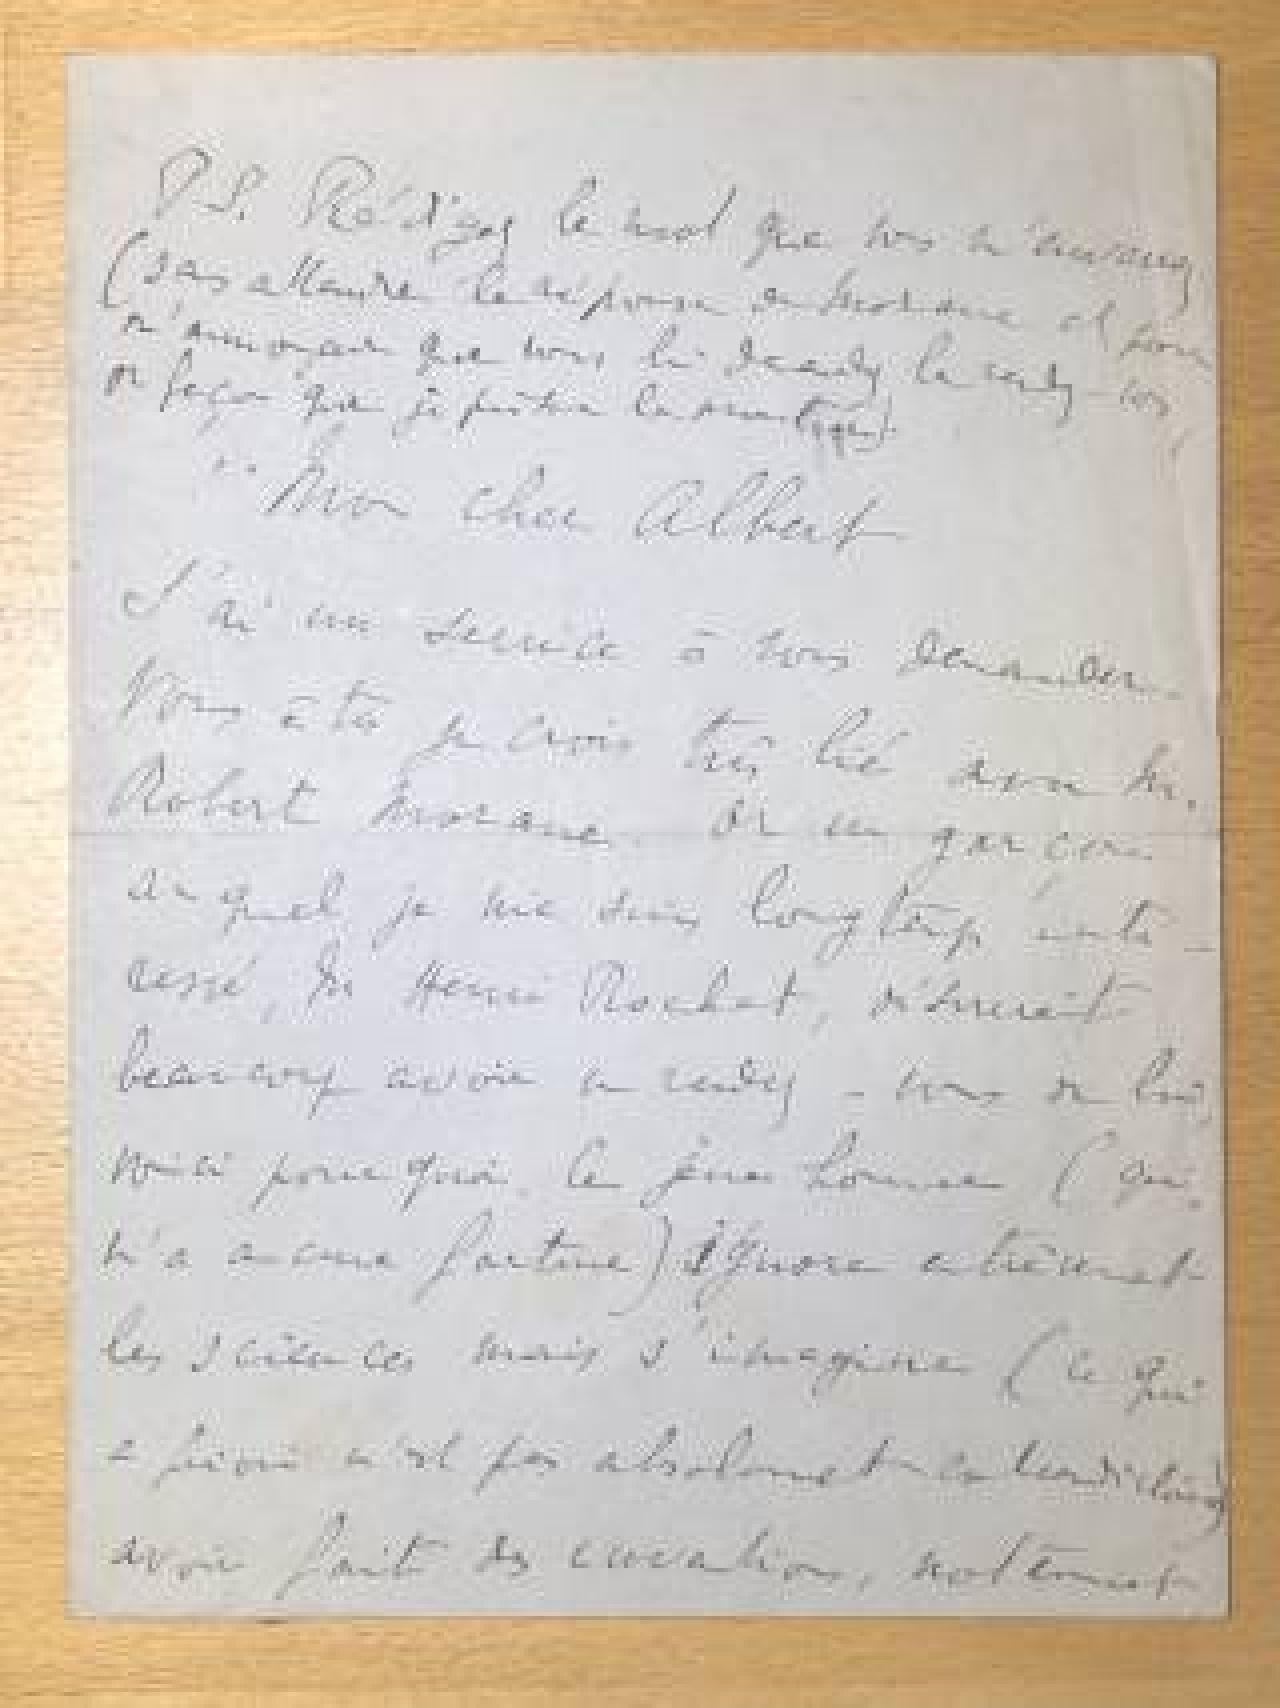 P.S. Rédigez le mot que vous m'enverrez
(sans attendre la réponse de Morane et pour
m'annoncer que vous lui demandez le rendez-vous,
de façon que je puisse le montrer).
"Mon cher Albert
J'ai un service à vous demander.
Vous êtes je crois très lié avec M.
Robert Morane. Or un garçon
auquel je me suis longtemps inté-
ressé, M. Henri Rochat, désirerait
beaucoup avoir un rendez-vous de lui,
voici pourquoi. Ce jeune homme (qui
n'a aucune fortune) ignore entièrement
les sciences mais s'imagine (ce qui
a priori n'est pas absolument contradictoire)
avoir fait des inventions, notamment